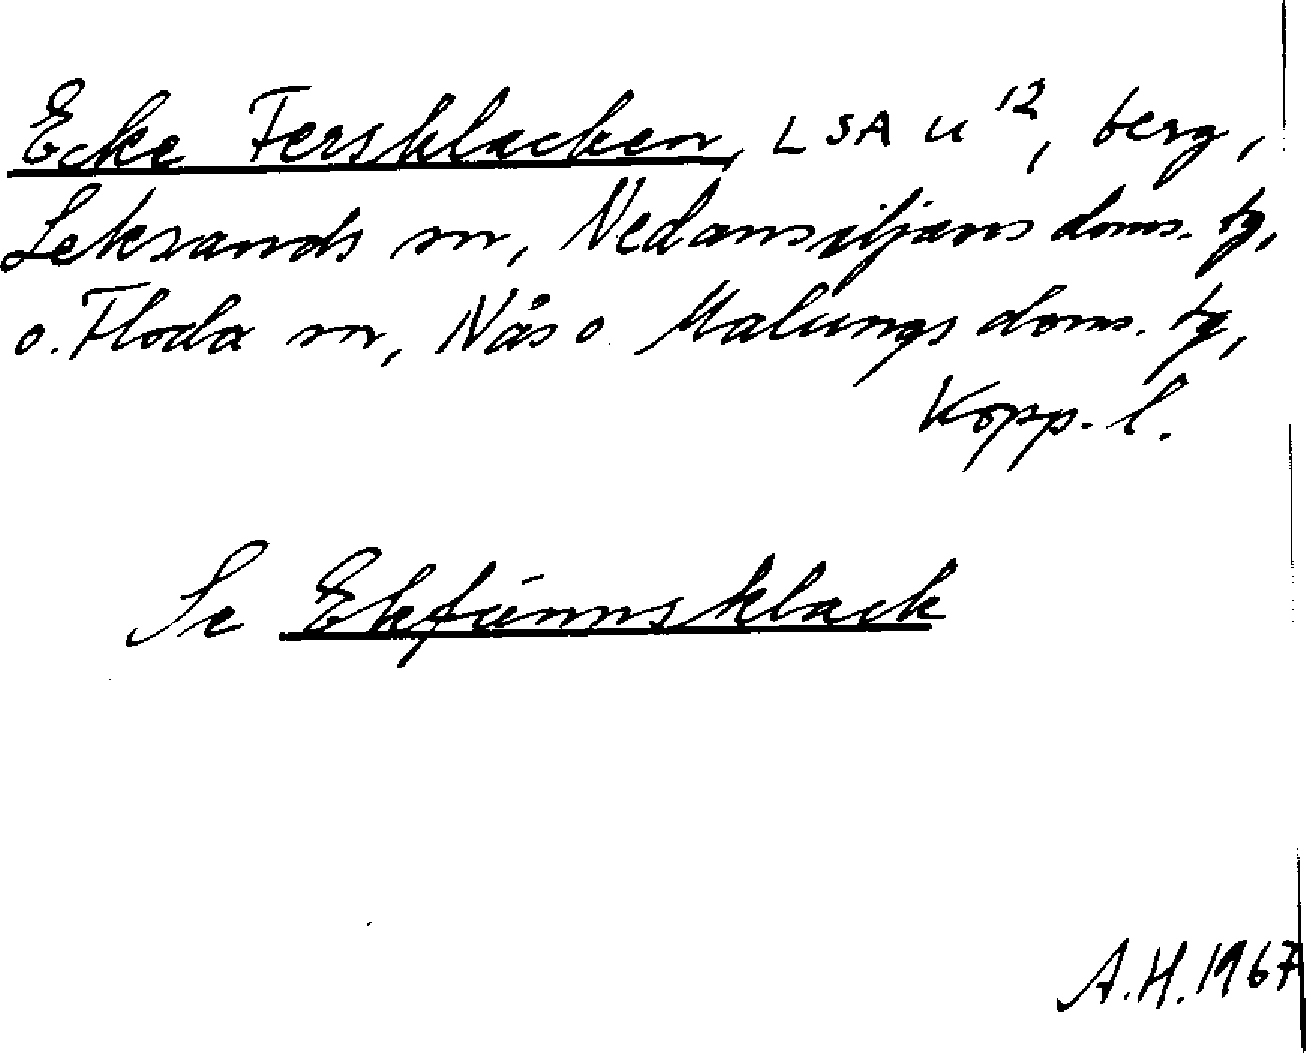 Ecke Fersklacken, LSA u 12, berg,
Leksands sn, Nedansiljans doms. tg,
o. Floda sn, Nås o. Malungs doms. tg,
Kopp. l.
Se Ekfännsklack
A.H. 1967